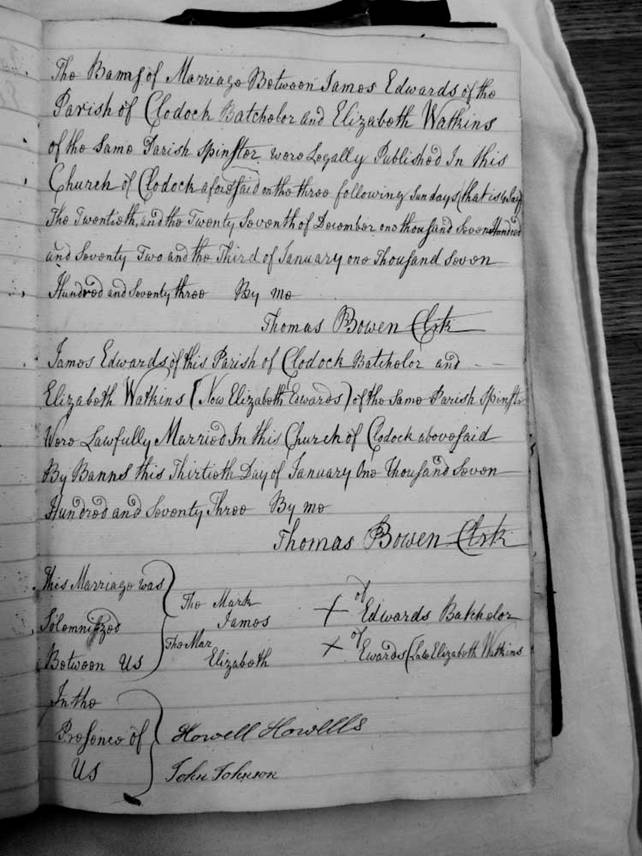 The Banns of Marriage Between James Edwards of the
Parish of Clodock Batchelor and Elizabeth Watkins
of the Same Parish Spinster were Legally Published In this
Church of Clodock aforesaid on the three following Sundays (that is to Say)
The Twentieth, and the Twenty Seventh of December one thousand Seven Hundred
and Seventy Two and the Third of January one Thousand Seven
Hundred and Seventy three By me
Thomas Bowen Clrk
James Edwards of this Parish of Clodock Batchelor and
Elizabeth Watkins (Now Elizabeth Edwards) of the Same Parish Spinster
Were Lawfully Married In this Church of Clodock abovesaid
By Banns this Thirtieth Day of January One Thousand Seven
Hundred and Seventy Three By me
Thomas Bowen Clrk
This Marriage was
Solemnized
Between Us
The Mark + of
James Edwards Batchelor
The Mar x of
Elizabeth Ewards (Late Elizabeth Watkins
In the
Presence of
Us
Howell Howells
John Johnson